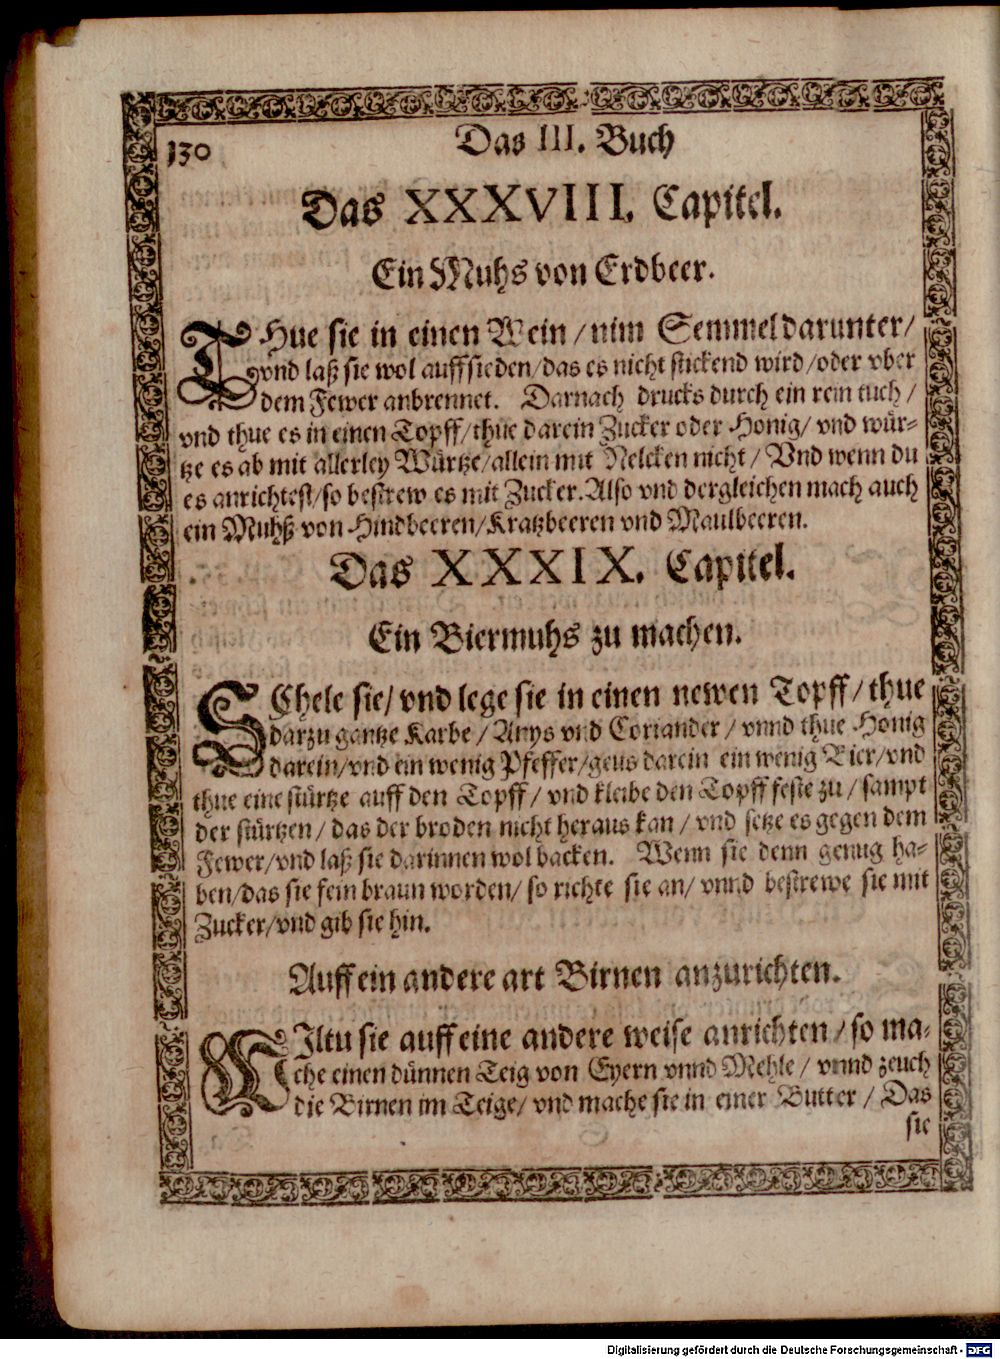 130
Das III. Buch
Das XXXVIII. Capitel.
Ein Muhs von Erdbeer.
THue sie in einen Wein / nim Semmel darunter /
vnd laß sie wol auffsieden / das es nicht stickend wird / oder vber
dem Fewer anbrennet. Darnach drucks durch ein rein tuch /
vnd thue es in einen Topff / thue darein Zucker oder Honig / vnd wür-
tze es ab mit allerley Würtze / allein mit Nelcken nicht / Vnd wenn du
es anrichtest / so bestrew es mit Zucker. Also vnd dergleichen mach auch
ein Muhß von Hindbeeren / Kratzbeeren vnd Maulbeeren.
Das XXXIX. Capitel.
Ein Biermuhs zu machen.
SChele sie / vnd lege sie in einen newen Topff / thue
darzu gantze Karbe / Anys vnd Coriander / vnnd thue Honig
darein / vnd ein wenig Pfeffer / geus darein ein wenig Bier / vnd
thue eine stürtze auff den Topff / vnd kleibe den Topff feste zu / sampt
der stürtzen / das der broden nicht heraus kan / vnd setze es gegen dem
Fewer / vnd laß sie darinnen wol backen. Wenn sie denn genug ha-
ben / das sie fein braun worden / so richte sie an / vnnd bestrewe sie mit
Zucker / vnd gib sie hin.
Auff ein andere art Birnen anzurichten.
WIltu sie auff eine andere weise anrichten / so ma-
che einen dünnen Teig von Eyern vnnd Mehle / vnnd zeuch
die Birnen im Teige / vnd mache sie in einer Butter / Das
sie
Digitalisierung gefördert durch die Deutsche Forschungsgemeinschaft - DFG